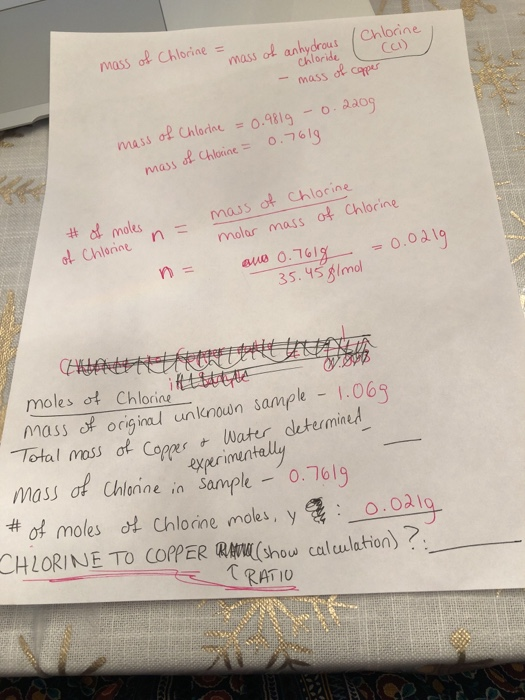 Chlorine
(Cl)
mass of Chlorine = mass of anhydrous
chloride
- mass of copper
mass of Chlorine = 0.981g - 0.220g
mass of Chlorine = 0.761g
# of moles n = mass of Chlorine
of Chlorine molar mass of Chlorine
n = 0.761g = 0.0219
35.45 g/mol
moles of Chlorine
Mass of original unknown sample - 1.06g
Total mass of Copper + Water determined
experimentally
Mass of Chlorine in sample - 0.761g
# of moles of Chlorine moles, y : 0.0219
CHLORINE TO COPPER (show calculation) ?:
↑ RATIO